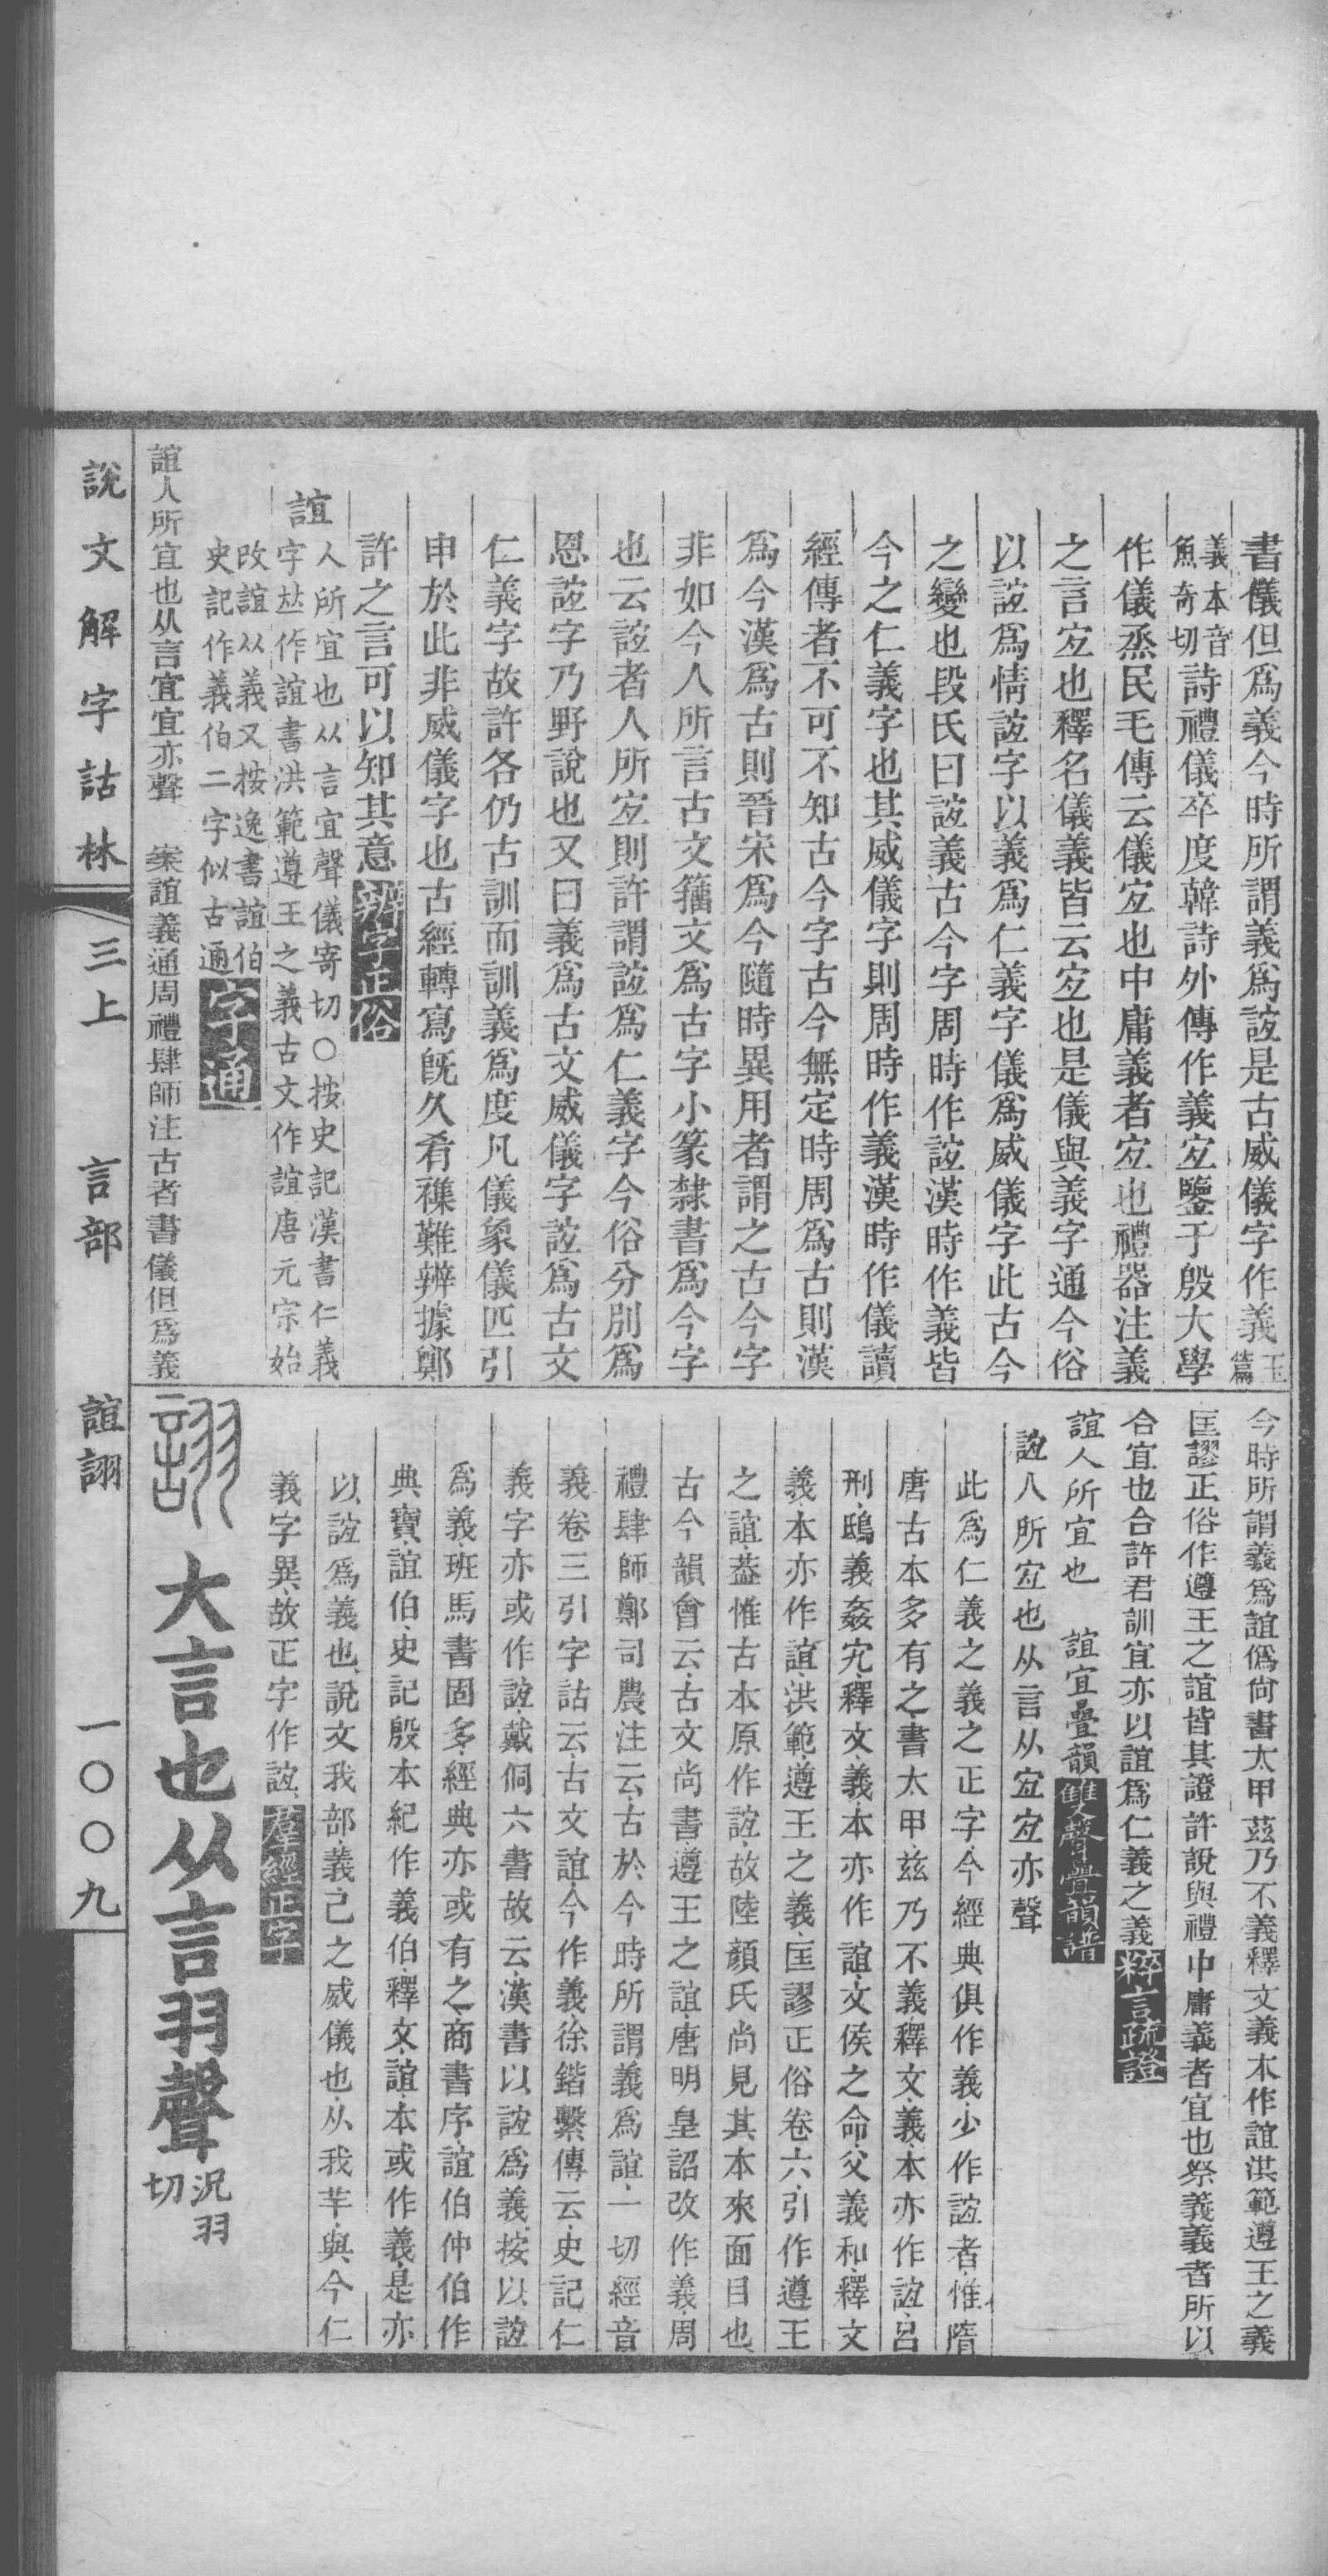 書儀但爲義今時所謂義爲誼是古威儀字作義玉篇
義本音魚奇切詩禮儀卒度韓詩外傳作義宐鑒于殷大學
作儀烝民毛傳云儀宐也中庸義者宐也禮器注義
之言宐也釋名儀義皆云宐也是儀與義字通今俗
以誼爲情誼字以義爲仁義字儀爲威儀字此古今
之變也段氏曰誼義古今字周時作誼漢時作義皆
今之仁義字也其威儀字則周時作義漢時作儀讀
經傳者不可不知古今字古今無定時周爲古則漢
爲今漢爲古則晉宋爲今隨時異用者謂之古今字
非如今人所言古文籀文爲古字小篆隸書爲今字
也云誼者人所宐則許謂誼爲仁義字今俗分別爲
恩誼字乃野說也又曰義爲古文威儀字誼爲古文
仁義字故許各仍古訓而訓義爲度凡儀象儀匹引
申於此非威儀字也古經轉寫旣久肴襍難辨據鄭
許之言可以知其意辨字正俗
誼
人所宜也从言宜聲儀寄切○按史記漢書仁義
字𠀤作誼書洪範遵王之義古文作誼唐元宗始
改誼从義又按逸書誼伯
史記作義伯二字似古通字通
誼人所宜也从言宜宜亦聲 案誼義通周禮肆師注古者書儀但爲義
說文解字詁林 三上 言部 誼詡 一〇〇九
今時所謂義爲誼僞尙書太甲茲乃不義釋文義本作誼洪範遵王之義
匡謬正俗作遵王之誼皆其證許說與禮中庸義者宜也祭義義者所以
合宜也合許君訓宜亦以誼爲仁義之義粹言疏證
誼人所宜也 誼宜疊韻雙聲疊韻譜
誼人所宐也从言从宐宐亦聲
此爲仁義之義之正字今經典俱作義少作誼者惟隋
唐古本多有之書太甲茲乃不義釋文義本亦作誼呂
刑鴟義姦宄釋文義本亦作誼文侯之命父義和釋文
義本亦作誼洪範遵王之義匡謬正俗卷六引作遵王
之誼蓋惟古本原作誼故陸顏氏尚見其本來面目也
古今韻會云古文尚書遵王之誼唐明皇詔改作義周
禮肆師鄭司農注云古於今時所謂義爲誼一切經音
義卷三引字詁云古文誼今作義徐鍇繫傳云史記仁
義字亦或作誼戴侗六書故云漢書以誼爲義按以誼
爲義班馬書固多經典亦或有之商書序誼伯仲伯作
典寶誼伯史記殷本紀作義伯釋文誼本或作義是亦
以誼爲義也說文我部義己之威儀也从我羊與今仁
義字異故正字作誼羣經正字
詡大言也从言羽聲況羽切